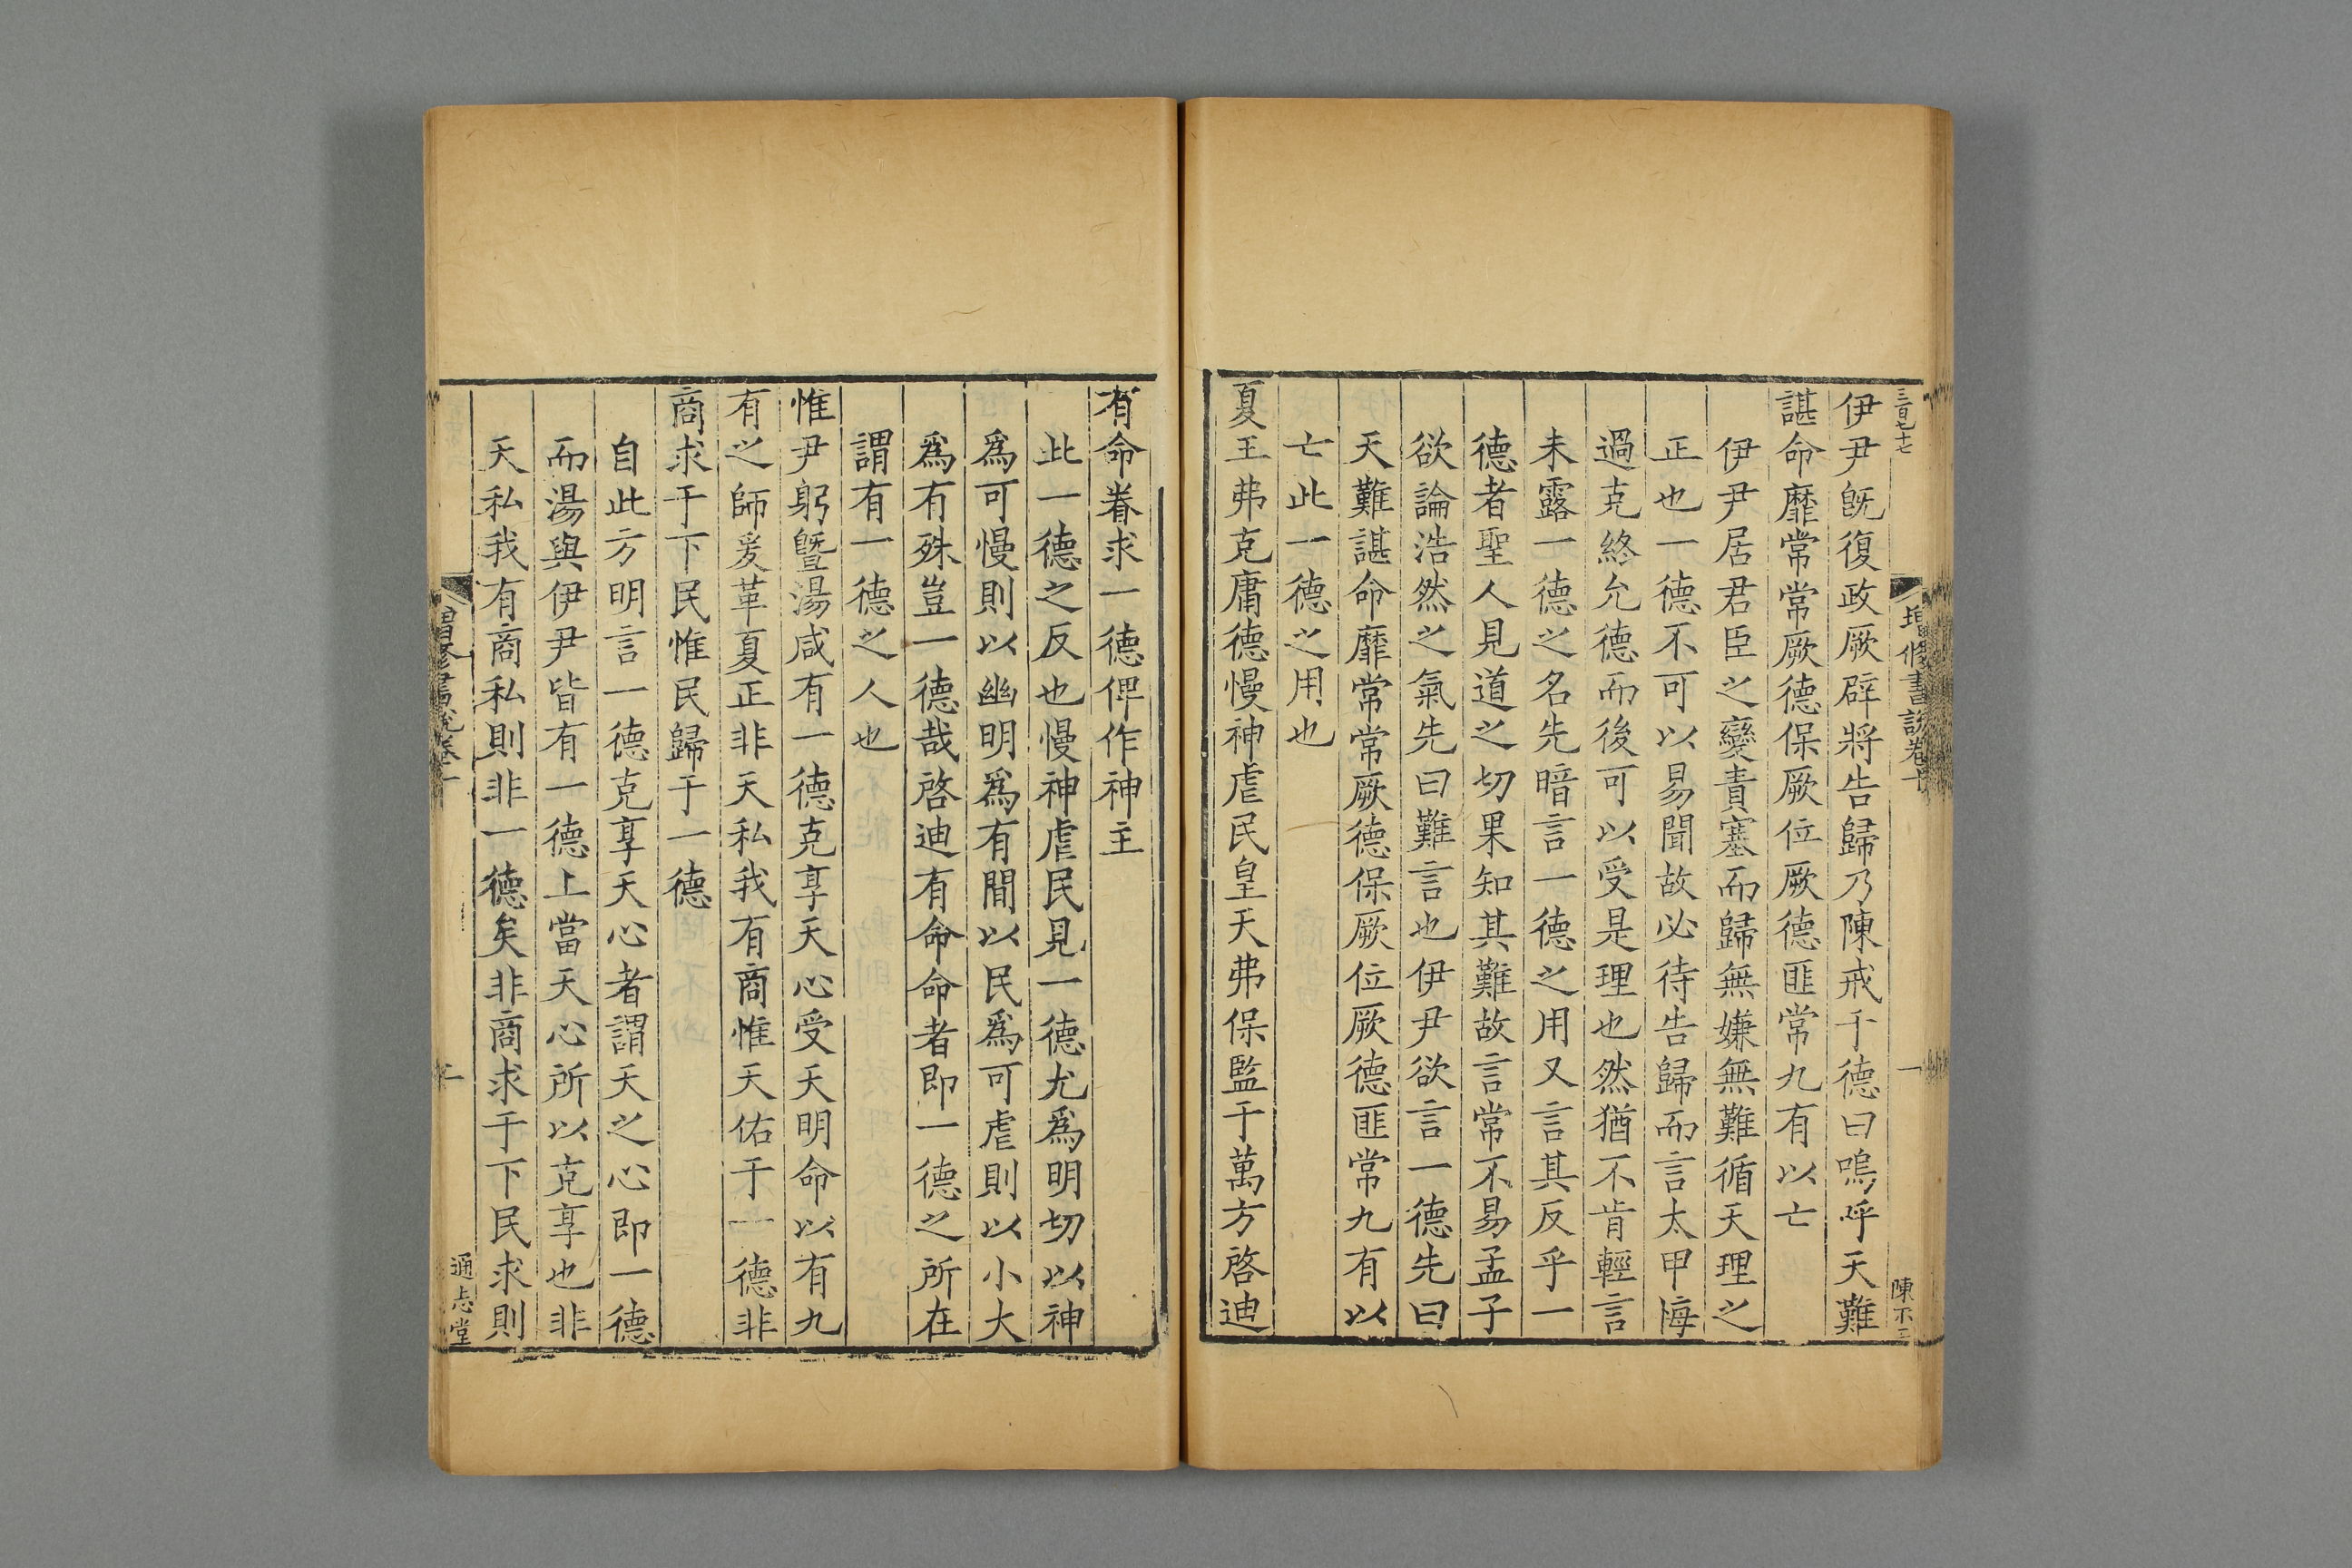 伊尹旣復政厥辟將告歸乃陳戒于德曰嗚呼天難
諶命靡常常厥德保厥位厥德匪常九有以亡
伊尹居君臣之變責塞而歸無嫌無難循天理之
正也一德不可以易聞故必待告歸而言太甲悔
過克終允德而後可以受是理也然猶不肯輕言
未露一德之名先暗言一德之用又言其反乎一
德者聖人見道之切果知其難故言常不易孟子
欲論浩然之氣先曰難言也伊尹欲言一德先曰
天難諶命靡常常厥德保厥位厥德匪常九有以
亡此一德之用也
夏王弗克庸德慢神虐民皇天弗保監于萬方啓迪
有命眷求一德俾作神主
此一德之反也慢神虐民見一德尤爲明切以神
爲可慢則以幽明爲有間以民爲可虐則以小大
爲有殊豈一德哉啓迪有命命者即一德之所在
謂有一德之人也
惟尹躬暨湯咸有一德克享天心受天明命以有九
有之師爰革夏正非天私我有商惟天佑于一德非
商求于下民惟民歸于一德
自此方明言一德克享天心者謂天之心即一德
而湯與伊尹皆有一德上當天心所以克享也非
天私我有商私則非一德矣非商求于下民求則
增修書說卷十
一
通志堂